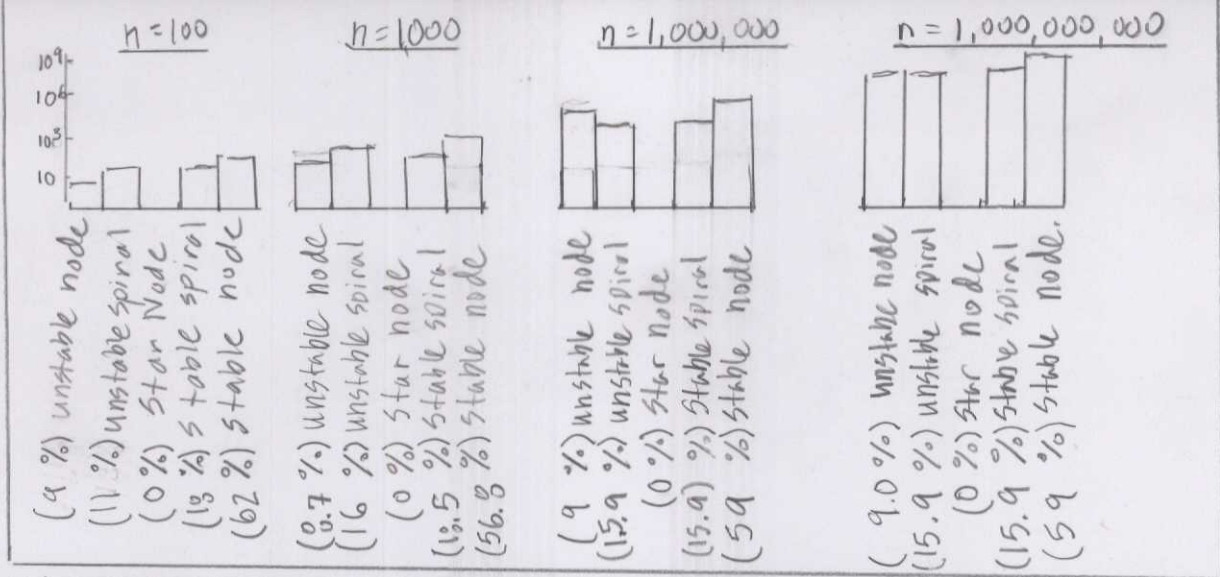 n = 100
n = 1,000
n = 1,000,000
n = 1,000,000,000
10⁹
10⁶
10³
10
(9 %) unstable node
(11 %) unstable spiral
(0 %) Star Node
(18 %) stable spiral
(62 %) stable node
(8.7 %) unstable node
(16 %) unstable spiral
(0 %) star node
(18.5 %) stable spiral
(56.8 %) stable node
(9 %) unstable node
(15.9 %) unstable spiral
(0 %) Star node
(15.9) %) Stable spiral
(59 %) stable node
(9.0 %) unstable node
(15.9 %) unstable spiral
(0 %) star node
(15.9 %) stable spiral
(59 %) stable node.